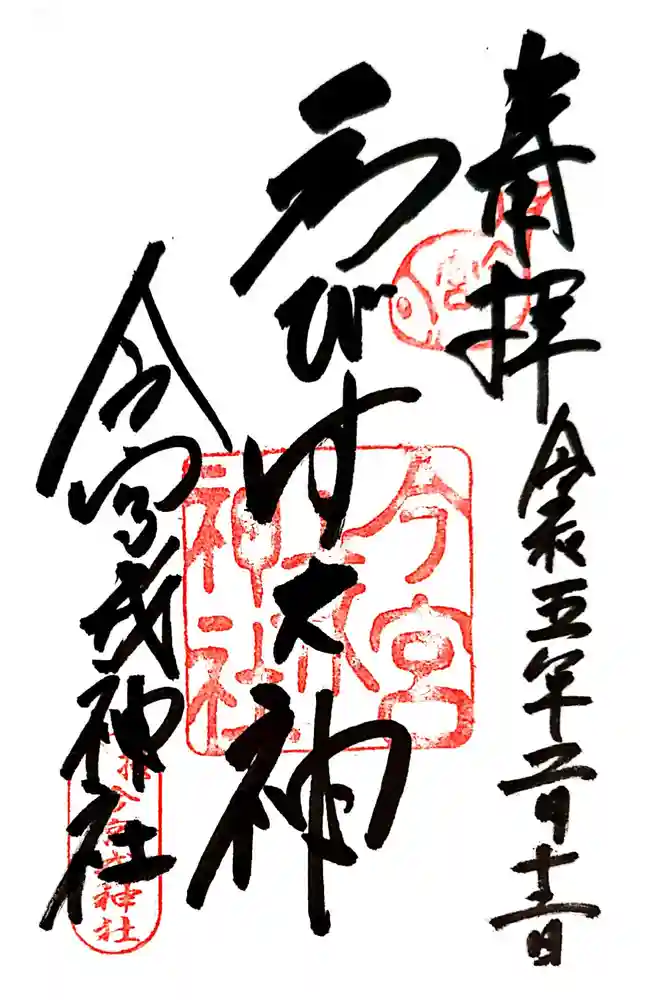 奉拝
令和五年二月
えびす大神
今宮戎神社
今宮戎神社
今宮戎神社